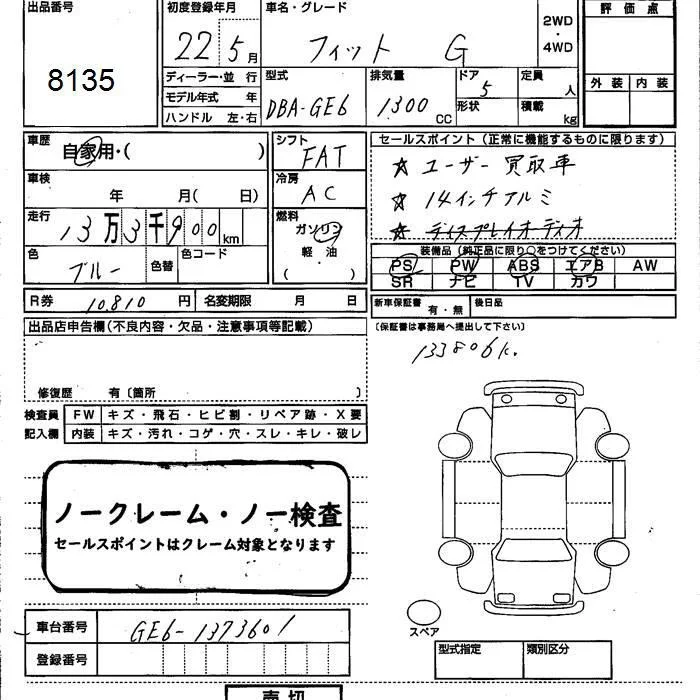 出品番号 初度登録年月 車名・グレード 2WD・4WD 評価点
8135 22 5月 フィット G
外装 内装
ディーラー・並 行 型式 排気量 ドア 定員
モデル年式 年 DBA-GE6 1300 CC 5 人
ハンドル 左・右 形状 積載 kg
車歴 自家用・( ) シフト FAT
セールスポイント(正常に機能するものに限ります)
☆ ユーザー買取車
☆ 14インチアルミ
☆ ディスプレイオーディオ
車検 年 月( 日) 冷房 AC
走行 13万3千900km 燃料 ガソリン
軽油
( )
色 ブルー 色替 色コード
装備品(純正品に限り○をつけてください)
PS PW ABS エアB AW
SR ナビ TV カワ
R券 10,810 円 名変期限 月 日
新車保証書 有・無 後日品
(保証書は事務局へ提出して下さい)
133806k.
出品店申告欄(不良内容・欠品・注意事項等記載)
修復歴 有〔箇所 〕
検査員 FW キズ・飛石・ヒビ割・リペア跡・X要
記入欄 内装 キズ・汚れ・コゲ・穴・スレ・キレ・破レ
ノークレーム・ノー検査
セールスポイントはクレーム対象となります
スペア
車台番号 GE6-1373601
登録番号
型式指定 類別区分
売切